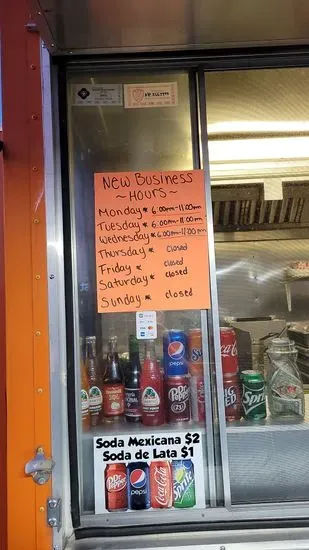 New Business
~ Hours ~
Monday* 6:00pm-11:00
Tuesday* 6:00pm-11:00
Wednesday* 6:00pm-11:00
Thursday* closed
Friday* closed
Saturday* closed
Sunday* closed
pepsi
Coca-Cola
Dr Pepper
BIG
Sprite
Soda Mexicana $2
Soda de Lata $1
Dr Pepper
pepsi
Coca-Cola
Sprite